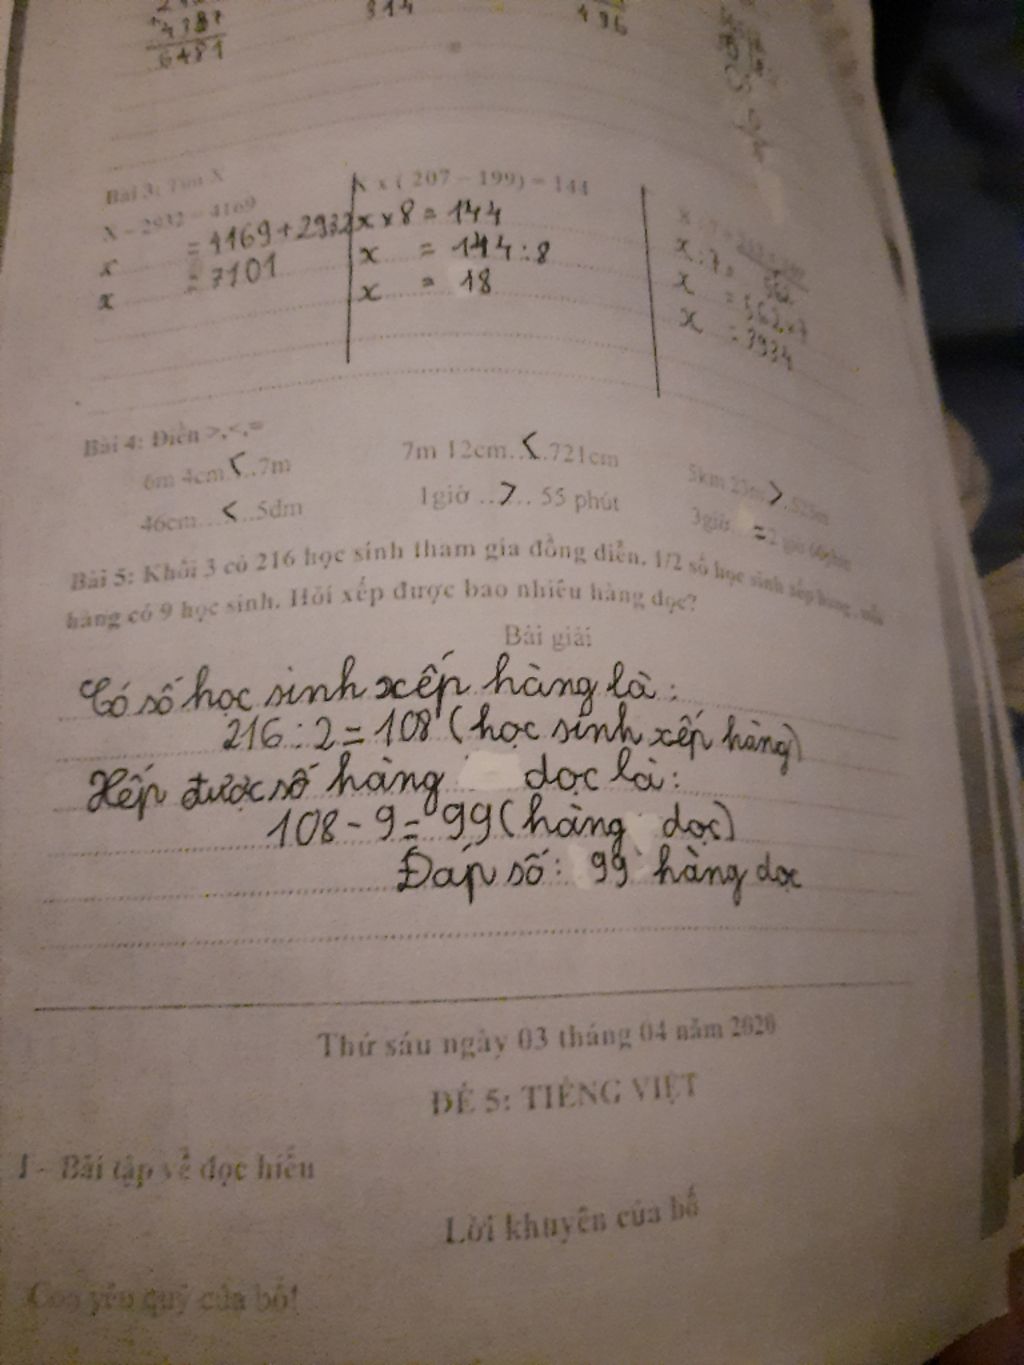 4387
6481
314
496
Bài 3: Tìm X
X - 2932 = 4169
x = 4169 + 2932
x = 7101
X x ( 207 – 199) = 144
x x 8 = 144
x = 144 : 8
x = 18
x : 7 = 562
x = 562 x 7
x = 3934
Bài 4: Điền >,<,=
6m 4cm < 7m
7m 12cm < 721cm
5km 23m > 523m
46cm < 5dm
1giờ > 55 phút
3giờ = 2 giờ 60phút
Bài 5: Khối 3 có 216 học sinh tham gia đồng diễn. 1/2 số học sinh xếp hàng , mỗi
hàng có 9 học sinh. Hỏi xếp được bao nhiêu hàng dọc?
Bài giải
Có số học sinh xếp hàng là :
216 : 2 = 108 (học sinh xếp hàng)
Xếp được số hàng dọc là :
108 - 9 = 99 (hàng dọc)
Đáp số : 99 hàng dọc
Thứ sáu ngày 03 tháng 04 năm 2020
ĐỀ 5: TIẾNG VIỆT
I – Bài tập về đọc hiểu
Lời khuyên của bố
Con yêu quý của bố!